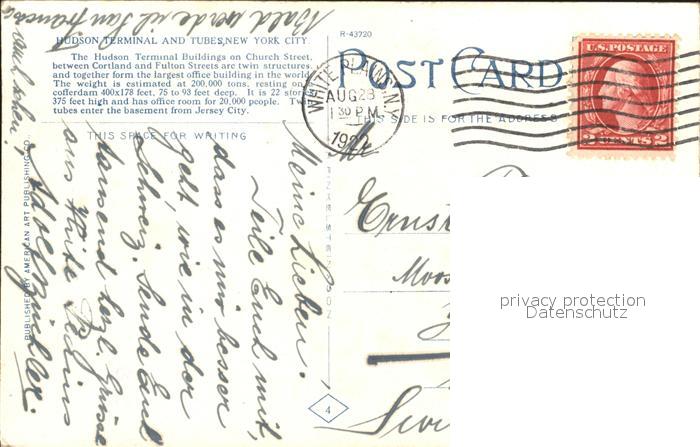 Bald werde ich San Francisco
auch sehen!
R-43720
HUDSON TERMINAL AND TUBES, NEW YORK CITY
The Hudson Terminal Buildings on Church Street,
between Cortland and Fulton Streets are twin structures,
and together form the largest office building in the world.
The weight is estimated at 200,000 tons, resting on
cofferdam 400x178 feet, 75 to 93 feet deep. It is 22 stories
375 feet high and has office room for 20,000 people. Twin
tubes enter the basement from Jersey City.
THIS SPACE FOR WRITING
POST CARD
THIS SIDE IS FOR THE ADDRESS
WHITE PLAINS, N.
AUG 28
1 30 P.M.
192
U.S. POSTAGE
2 CENTS 2
Meine Lieben.
Teile Euch mit,
dass es mir besser
geht, wie in der
Schweiz. Sende Euch
tausend herzl. Grüsse
aus White Plains
Adolf
PUBLISHED BY AMERICAN ART PUBLISHING CO.
Ernst
Moos
4
privacy protection
Datenschutz